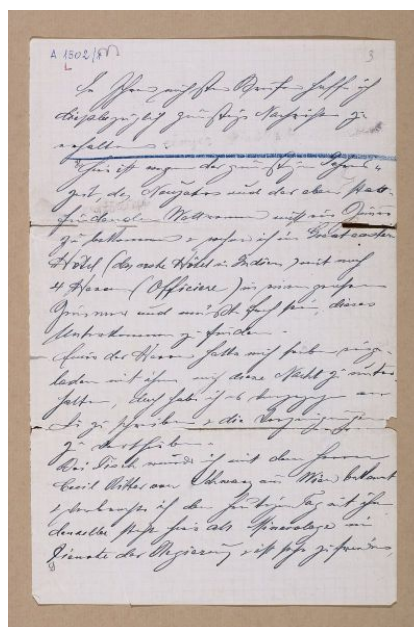 A 1302/
L
3
In Ihrem nächsten Briefe hoffe ich
diesbezüglich günstige Nachrichten zu
erhalten.
Hier ist wegen der
zeit des Neujahres und der eben statt-
findenden
zu bekommen & wohne ich im Great eastern
Hôtel (das erste Hôtel in Indien) mit noch
4 Herren (Officiere) in einem großen
Zimmer und muß ich froh sein, dieses
Unterkommen zu finden.
Einer der Herren hatte mich
laden mit ihm diese Nacht zu
halten, doch habe ich es vorgezogen an
Sie zu schreiben & die
zu
Bei Tisch wurde ich mit dem Herrn
Cecil Ritter von Schwarz aus Wien bekannt
& verbrachte ich den heutigen Tag mit ihm
derselbe steht hier als Mineraloge im
Dienste der Regierung & ist sehr zufrieden,